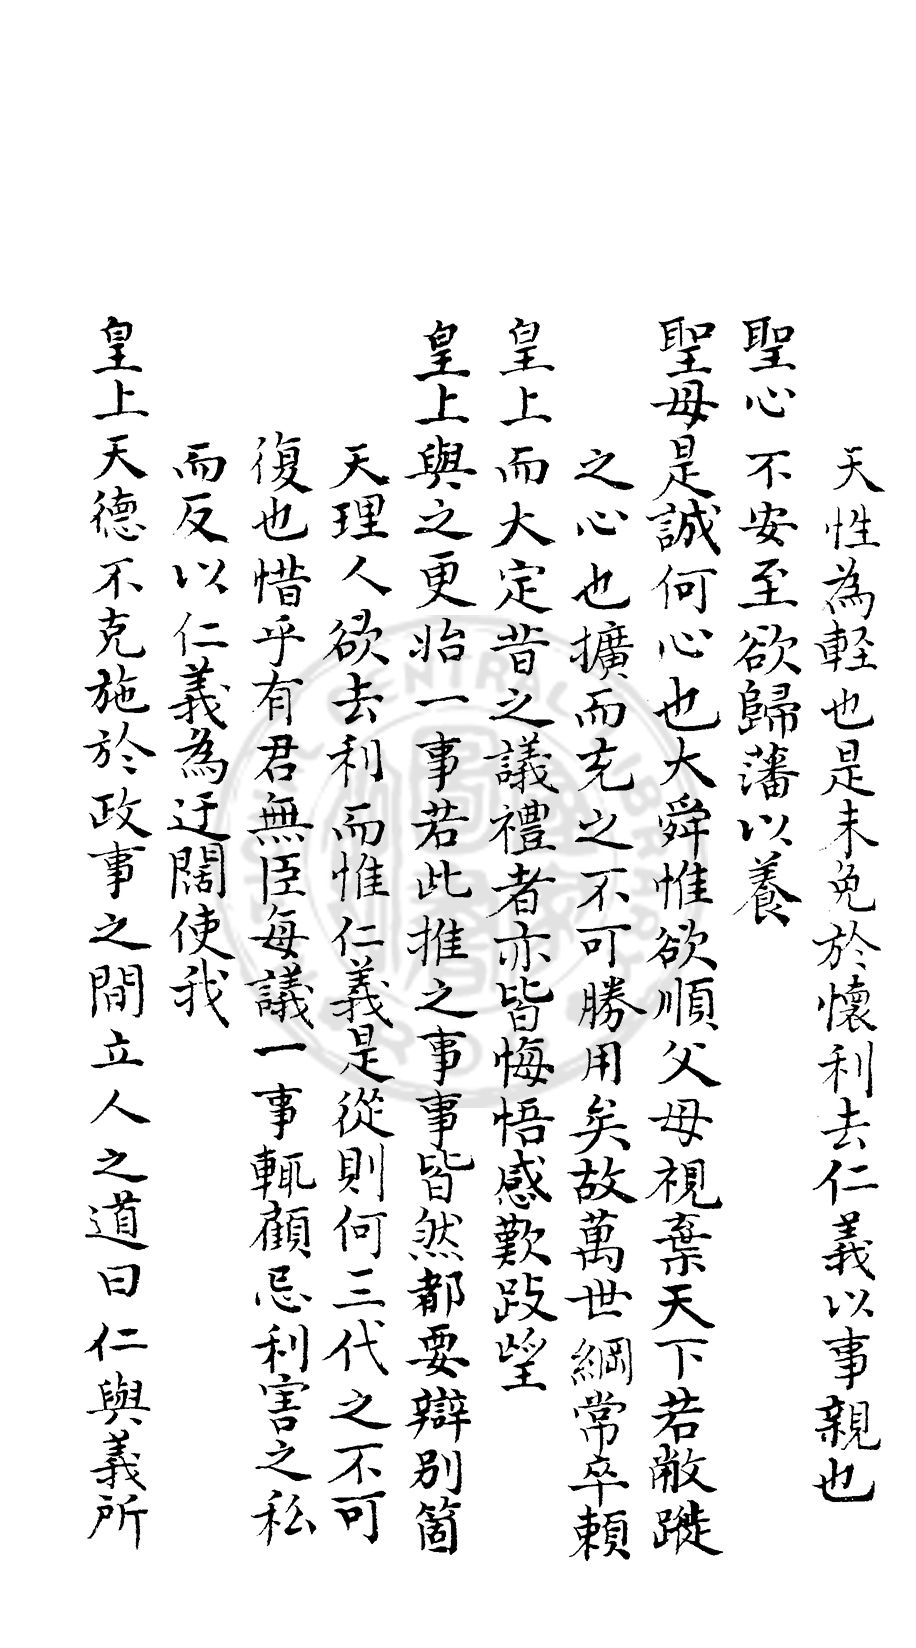 天性為輕也是未免於懷利去仁義以事親也
聖心不安至欲歸藩以養
聖母是誠何心也大舜惟欲順父母視棄天下若敝蹝
之心也擴而充之不可勝用矣故萬世綱常卒賴
皇上而大定昔之議禮者亦皆悔悟感歎跂朢
皇上與之更始一事若此推之事事皆然都要辯別箇
天理人欲去利而惟仁義是從則何三代之不可
復也惜乎有君無臣每議一事輒顧忌利害之私
而反以仁義為迂闊使我
皇上天德不克施於政事之間立人之道曰仁與義所
CENTRAL LIBRARY